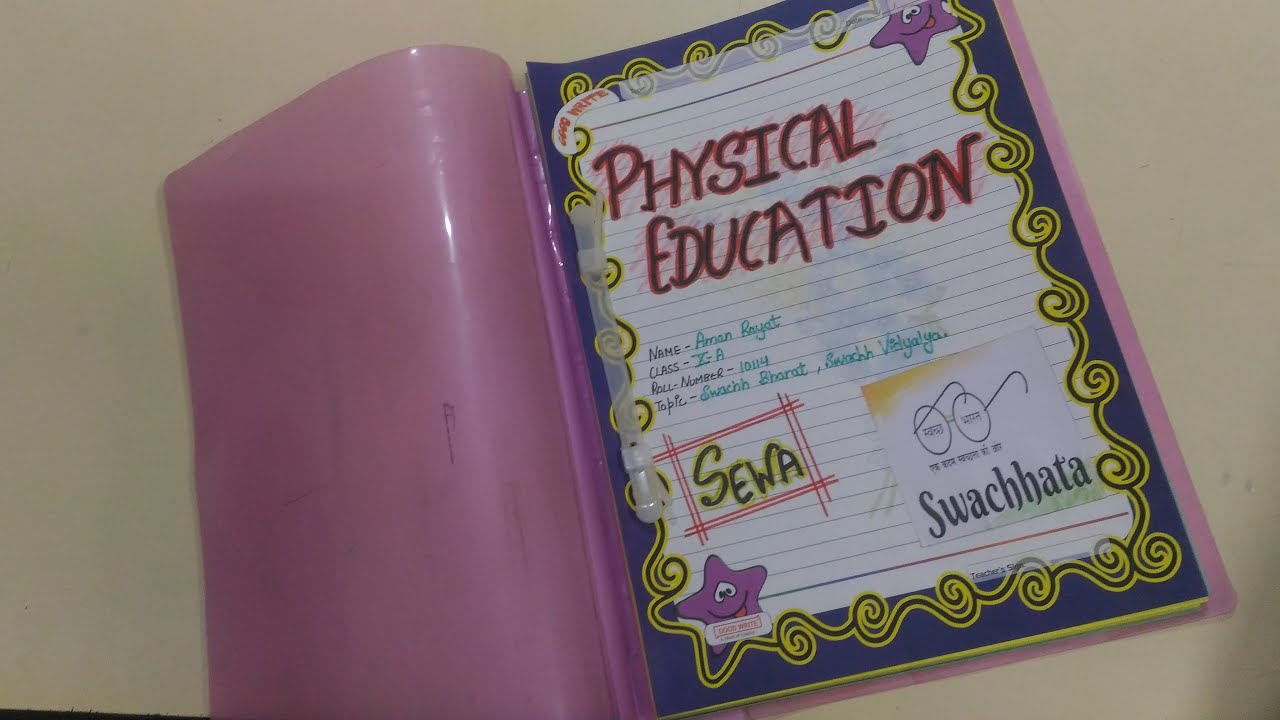 GOOD WRITE
PHYSICAL
EDUCATION
NAME - Aman Rayat
CLASS - X-A
ROLL-NUMBER - 10114
Topic - Swachh Bharat, Swachh Vidyalya.
SEWA
स्वच्छ भारत
एक कदम स्वच्छता की ओर
Swachhata
Teacher's Sign
GOOD WRITE